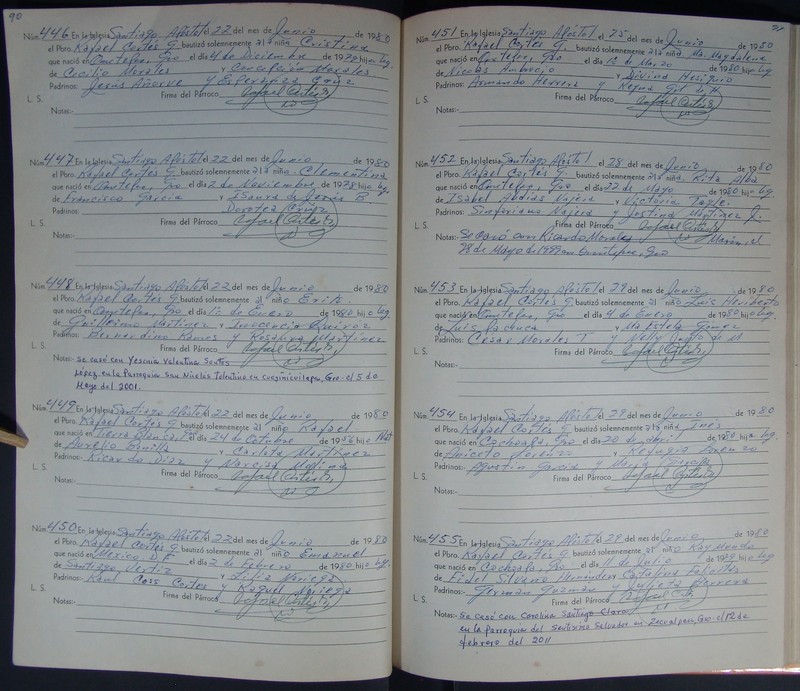 90
Núm. 446 En la Iglesia Santiago Apóstol el 22 del mes de Junio de 1980
el Pbro. Rafael Cortés G. bautizó solemnemente a la niña Cristina
que nació en Ometepec, Gro el día 4 de Diciembre de 1979 hija lg.
de Cecilio Morales y Concepción Morales
Padrinos: Jesús Añorve y Esperanza Cruz
L. S. Firma del Párroco Rafael Cortés G
Notas:-
Núm. 447 En la Iglesia Santiago Apóstol el 22 del mes de Junio de 1980
el Pbro. Rafael Cortés G. bautizó solemnemente a la niña Clementina
que nació en Ometepec, Gro el día 2 de Noviembre de 1978 hija lg.
de Francisco García y Isaura de Jesús B
Padrinos: Dorotea Cruz
L. S. Firma del Párroco Rafael Cortés G
Notas:-
Núm. 448 En la Iglesia Santiago Apóstol el 22 del mes de Junio de 1980
el Pbro. Rafael Cortés G. bautizó solemnemente al niño Erik
que nació en Ometepec, Gro el día 1º de Enero de 1980 hijo lg.
de Guillermo Martínez y Inocencia
Padrinos: Bernardino Ramos y Rosalina Martínez
L. S. Firma del Párroco Rafael Cortés G
Notas:- Se casó con Yesenia Valentina Santos
López, en la Parroquia San Nicolás Tolentino en Cuajinicuilapa, Gro. el 5 de
Mayo del 2001.
Núm. 449 En la Iglesia Santiago Apóstol el 22 del mes de Junio de 1980
el Pbro. Rafael Cortés G. bautizó solemnemente al niño Rafael
que nació en Tierra Blanca, el día 24 de Octubre de 1956 hijo Nat
de Aurelio Bonilla y Carlota Martínez
Padrinos: Ricardo Díaz y Narcisa Medina
L. S. Firma del Párroco Rafael Cortés G
Notas:-
Núm. 450 En la Iglesia Santiago Apóstol el 22 del mes de Junio de 1980
el Pbro. Rafael Cortés G. bautizó solemnemente al niño Emanuel
que nació en México D F el día 2 de Febrero de 1980 hijo lg.
de Santiago Vertiz y Lilia Noriega
Padrinos:- Raúl Coss Cortés y Raquel Noriega
L. S. Firma del Párroco Rafael Cortés G
Notas:-
91
Núm. 451 En la Iglesia Santiago Apóstol el 25 del mes de Junio de 1980
el Pbro. Rafael Cortés G. bautizó solemnemente a la niña Ma. Magdalena
que nació en Ometepec, Gro el día 13 de Marzo de 1980 hija lg.
de Nicolás Ambrocio y Divina Hesiquio
Padrinos: Armando Herrera y Reyna Gil de H.
L. S. Firma del Párroco Rafael Cortés G
Notas:-
Núm. 452 En la Iglesia Santiago Apóstol el 28 del mes de Junio de 1980
el Pbro. Rafael Cortés G. bautizó solemnemente a la niña Rita Alba
que nació en Ometepec, Gro el día 22 de Mayo de 1980 hija lg.
de Isabel Najera y Victoria Tagle
Padrinos: Sinforiano Najera y Justina Martínez J.
L. S. Firma del Párroco Rafael Cortés G
Notas:- Se casó con Ricardo Morales Marín, el
28 de Mayo de 1999 en Ometepec, Gro
Núm. 453 En la Iglesia Santiago Apóstol el 29 del mes de Junio de 1980
el Pbro. Rafael Cortés G. bautizó solemnemente al niño Luis Heriberto
que nació en Ometepec, Gro el día 4 de Enero de 1980 hijo lg.
de Luis Pachuca y Ma Estela Gómez
Padrinos: Cesar Morales T y Nelly de M
L. S. Firma del Párroco Rafael Cortés G
Notas:-
Núm. 454 En la Iglesia Santiago Apóstol el 29 del mes de Junio de 1980
el Pbro. Rafael Cortés G. bautizó solemnemente a la niña Inés
que nació en Cochoapa, Gro el día 20 de Abril de 1980 hija lg.
de Lorenzo y Refugia Lorenzo
Padrinos: Agustín García y María Priscila
L. S. Firma del Párroco Rafael Cortés G
Notas:-
Núm. 455 En la Iglesia Santiago Apóstol el 29 del mes de Junio de 1980
el Pbro. Rafael Cortés G. bautizó solemnemente al niño Raymundo
que nació en Cochoapa, Gro el día 11 de Julio de 1979 hijo lg.
de Fidel Silverio y Catalina
Padrinos: Germán Guzmán y Julieta Herrera
L. S. Firma del Párroco Rafael Cortés G
Notas:- Se casó con Carolina Santiago Claro
en la Parroquia del Santísimo Salvador en Zacoalpan, Gro. el 12 de
febrero del 2011